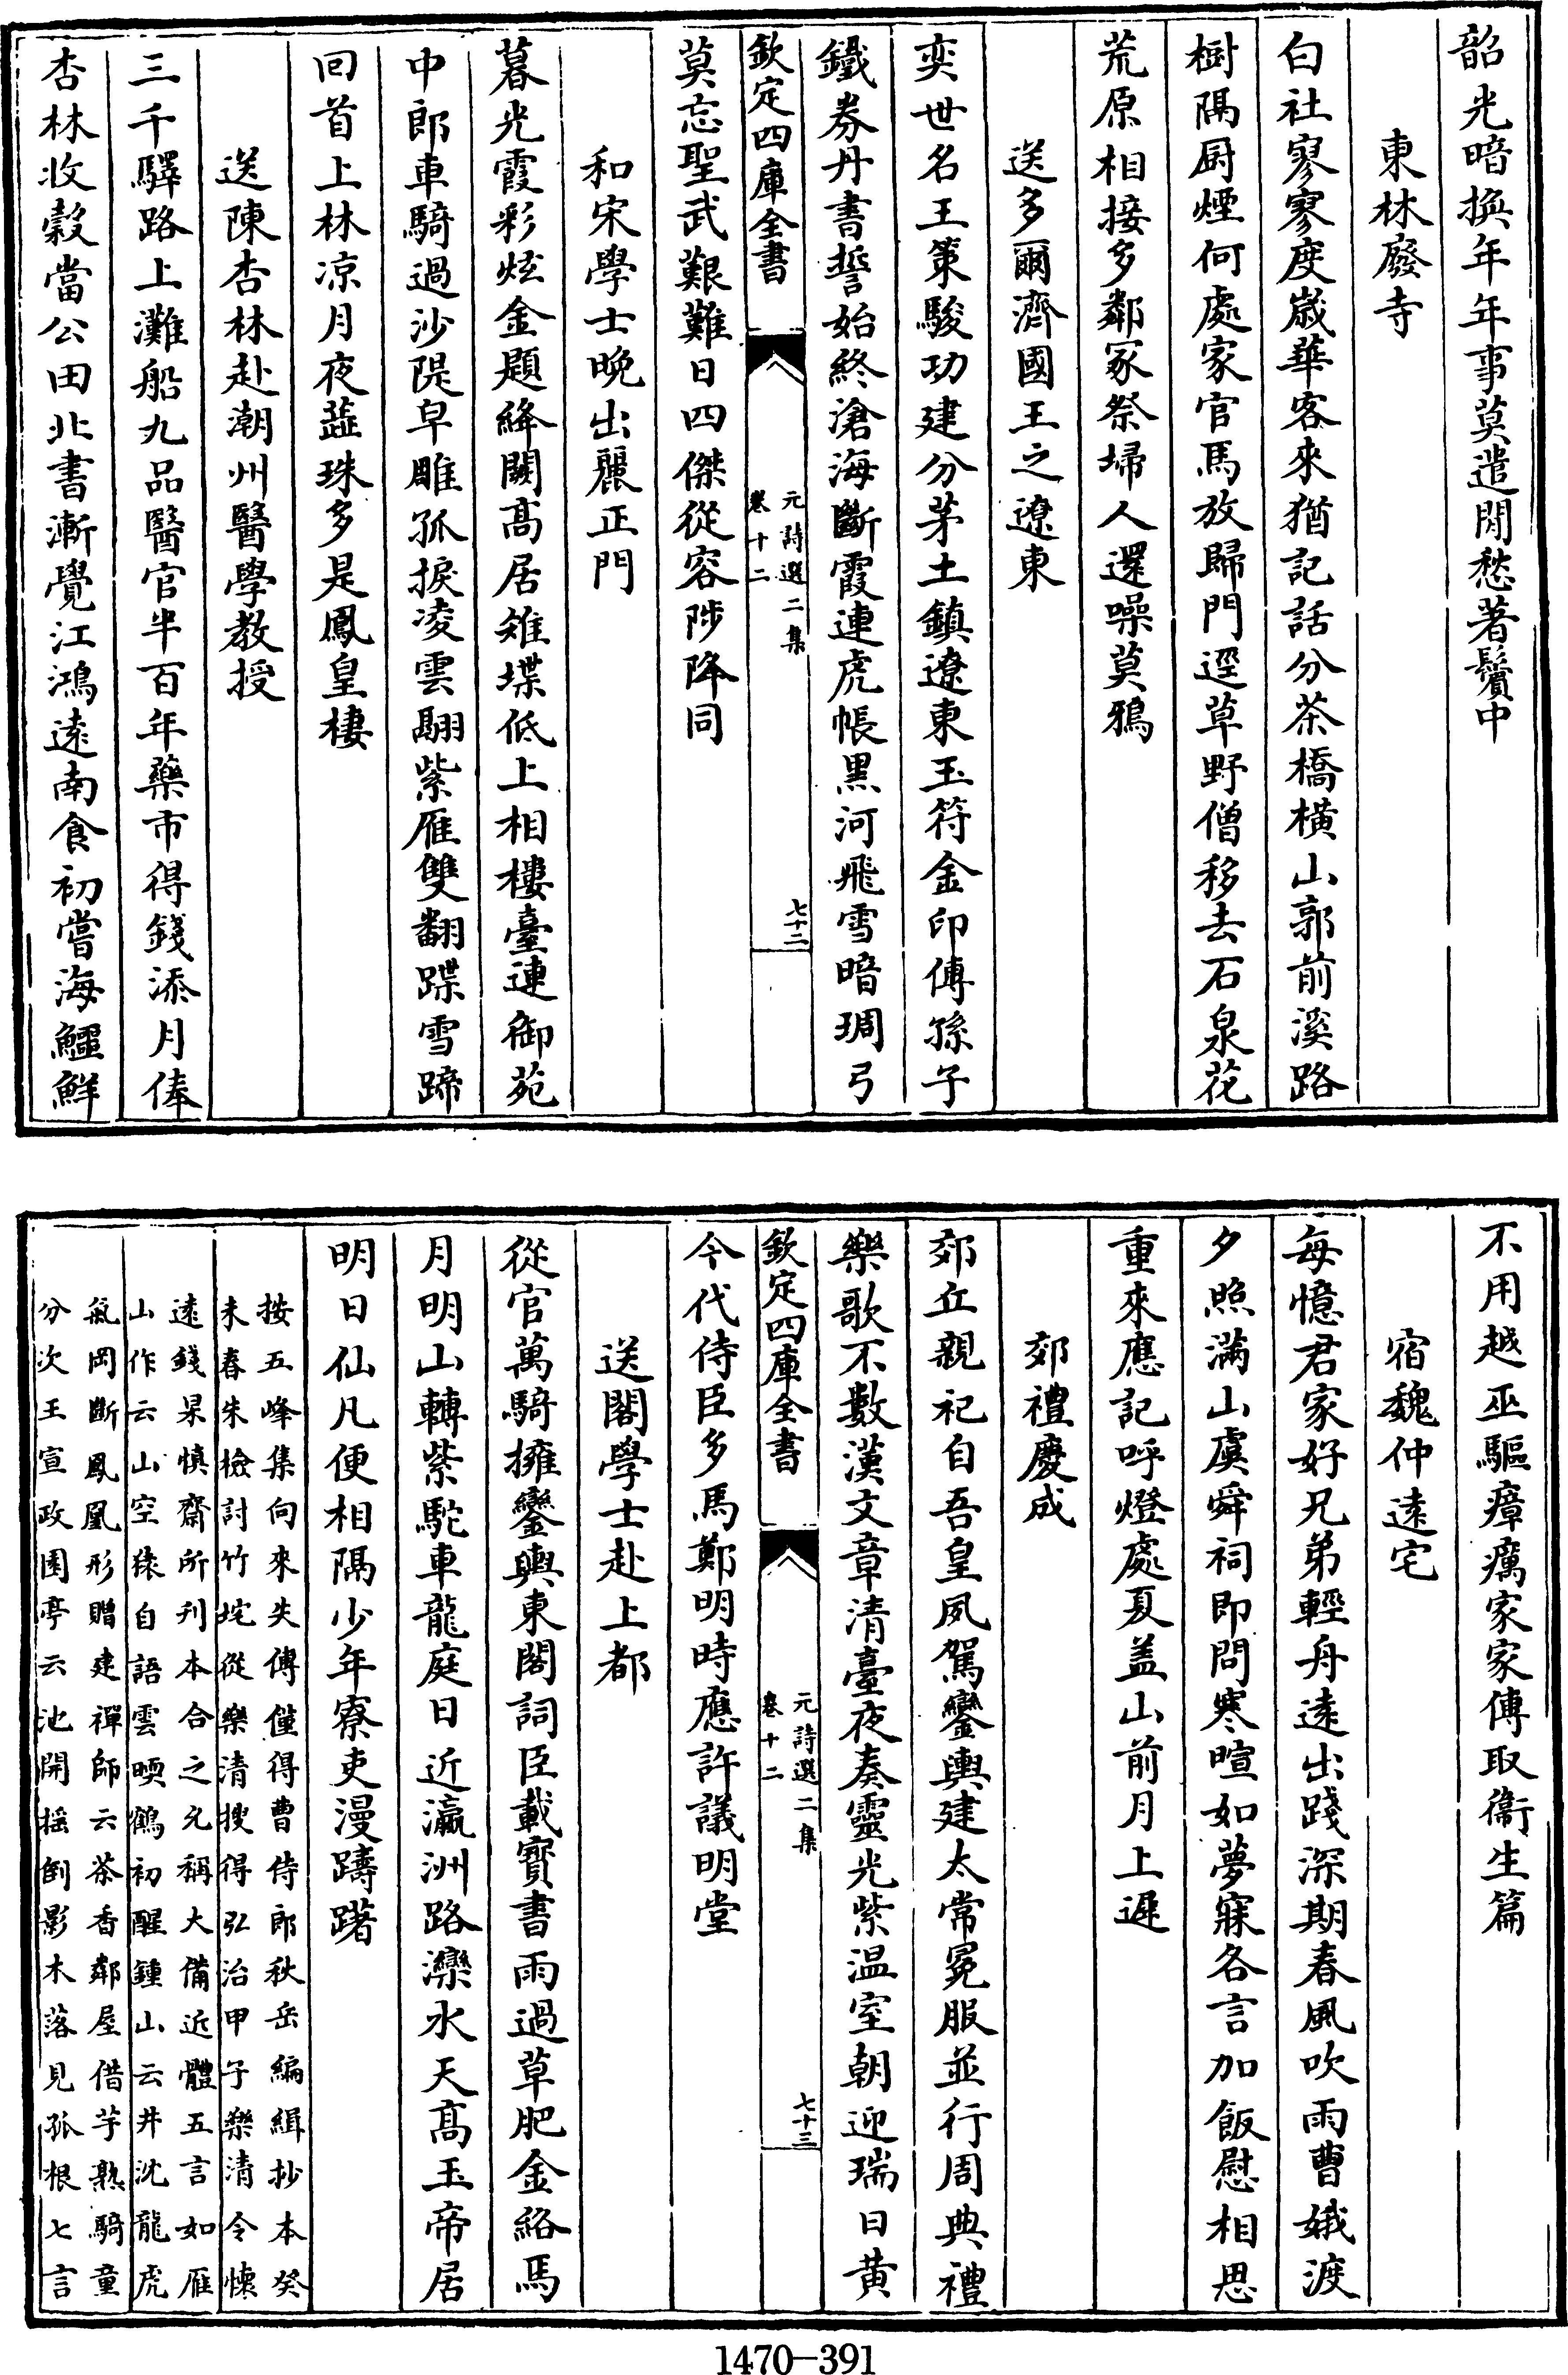 韶光暗換年年事莫遣閒愁著鬢中
東林廢寺
白社寥寥度歲華客來猶記話分茶橋橫山郭前溪路
樹隔厨煙何處家官馬放歸門逕草野僧移去石泉花
荒原相接多鄰冢祭埽人還噪莫鴉
送多爾濟國王之遼東
奕世名王策駿功建分茅土鎮遼東玉符金印傳孫子
鐵券丹書誓始終滄海斷霞連虎帳黒河飛雪暗琱弓
欽定四庫全書
元詩選二集
卷十二
七十二
莫忘聖武艱難日四傑從容陟降同
和宋學士晩出麗正門
暮光霞彩炫金題絳闕髙居雉堞低上相樓臺連御苑
中郎車騎過沙隄早雕孤捩凌雲翮紫雁雙翻蹀雪蹄
回首上林凉月夜蘂珠多是鳳皇棲
送陳杏林赴潮州醫學教授
三千驛路上灘船九品醫官半百年藥市得錢添月俸
杏林收穀當公田北書漸覺江鴻逺南食初嘗海鱷鮮
不用越巫驅瘴癘家家傳取衞生篇
宿魏仲逺宅
每憶君家好兄弟輕舟逺出踐深期春風吹雨曹娥渡
夕照滿山虞舜祠即問寒暄如夢寐各言加飯慰相思
重來應記呼燈處夏盖山前月上遲
郊禮慶成
郊丘親祀自吾皇夙駕鑾輿建太常冕服並行周典禮
樂歌不數漢文章清臺夜奏靈光紫温室朝迎瑞日黄
欽定四庫全書
元詩選二集
卷十二
七十三
今代侍臣多馬鄭明時應許議明堂
送閣學士赴上都
從官萬騎擁鑾輿東閣詞臣載寳書雨過草肥金絡馬
月明山轉紫駝車龍庭日近瀛洲路灤水天髙玉帝居
明日仙凡便相隔少年寮吏漫躊躇
按五峰集向來失傳僅得曹侍郎秋岳編緝抄本癸
未春朱檢討竹垞從樂清搜得弘治甲子樂清令懐
逺錢杲慎齋所刋本合之允稱大備近體五言如雁
山作云山空猿自語雲暝鶴初醒鍾山云井沈龍虎
氣岡斷鳳凰形贈建禪師云茶香鄰屋借芋熟騎童
分次王宣政園亭云池開揺倒影木落見孤根七言
1470—391